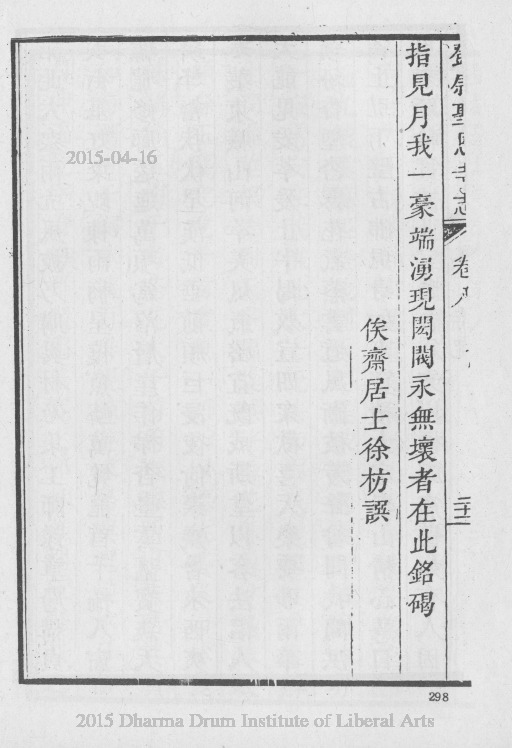 鄧尉聖恩寺志
卷八
二十一
指見月我一豪端湧現閎閣永無壞者在此銘碣
俟齋居士徐枋譔
2015-04-16
298
2015 Dharma Drum Institute of Liberal Arts